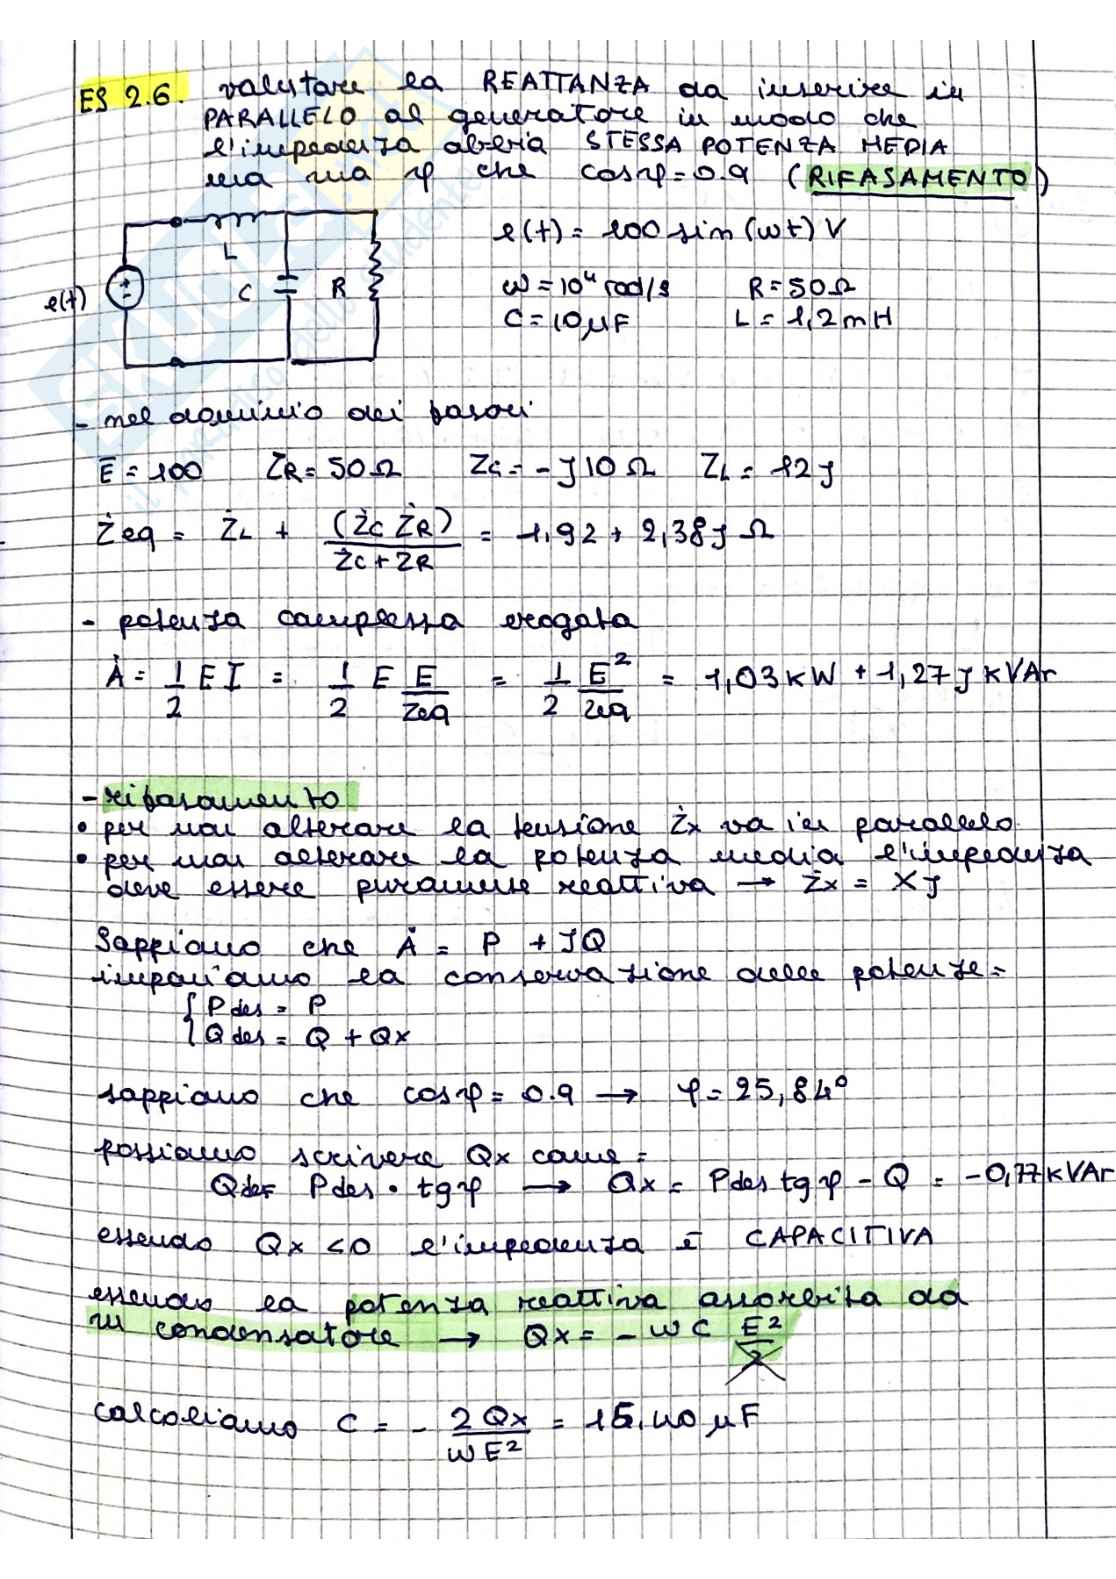 ES 2.6. valutare la REATTANZA da inserire in
PARALLELO al generatore in modo che
l'impedenza abbia STESSA POTENZA MEDIA
ma una φ che cosφ=0.9 (RIFASAMENTO)
e(t) = 100 sin(ωt) V
L
e(t) C R
ω = 10⁴ rad/s R = 50Ω
C = 10μF L = 1,2mH
- nel dominio dei fasori
Ē = 100 ŻR = 50Ω ZC = -J10Ω ZL = 12J
Żeq = ŻL + (ŻC ŻR) / (ŻC + ŻR) = 1,92 + 2,38J Ω
- potenza complessa erogata
Ȧ = 1/2 E I = 1/2 E E/Zeq = 1/2 E²/Zeq = 1,03 kW + 1,27J kVAr
- rifasamento
• per non alterare la tensione Żx va in parallelo
• per non alterare la potenza media l'impedenza
deve essere puramente reattiva → Żx = XJ
Sappiamo che Ȧ = P + JQ
imponiamo la conservazione delle potenze =
{ Pdes = P
Qdes = Q + Qx
sappiamo che cosφ = 0.9 → φ = 25,84°
possiamo scrivere Qx come =
Qdes = Pdes • tgφ → Qx = Pdes tgφ - Q = -0,77kVAr
essendo Qx <0 l'impedenza è CAPACITIVA
essendo la potenza reattiva assorbita da
un condensatore → Qx = - ωC E²/2
calcoliamo C = - 2Qx / ωE² = 15,40 μF